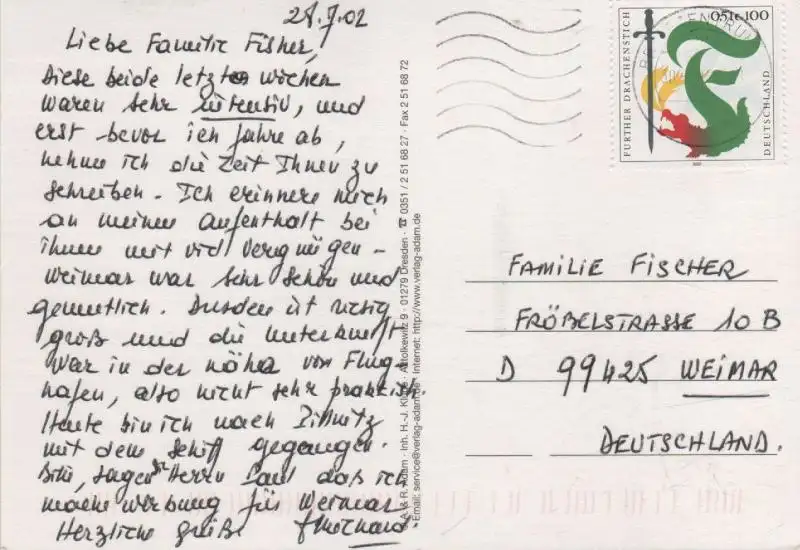 28.7.02
Liebe Familie Fisher!
Diese beide letzte wochen
waren sehr intensiv, und
erst bevor ich fahre ab,
nehme ich die Zeit Ihnen zu
schreiben. Ich erinnere mich
an meinen Aufenthalt bei
ihnen mit viel vergnügen -
Weimar war sehr schön und
gemütlich. Dresden ist riesig
groß und die Unterkunft
war in der näha von Flug-
hafen, also nicht sehr praktisch.
Heute bin ich nach Pillnitz
mit dem Schiff gegangen.
Bitte, sagen Sie Herrn Paul daß ich
mache werbung für Weimar
Herzliche grüße
A. & R. Adam · Inh. H.-J. · Altolkewitz 9 · 01279 Dresden · ☎ 0351 / 2 51 68 27 · Fax 2 51 68 72
Email: service@verlag-adam.de · Internet: http://www.verlag-adam.de
0,51€ 100
FURTHER DRACHENSTICH
DEUTSCHLAND
FAMILIE FISCHER
FRÖBELSTRASSE 10 B
D 99425 WEIMAR
DEUTSCHLAND.